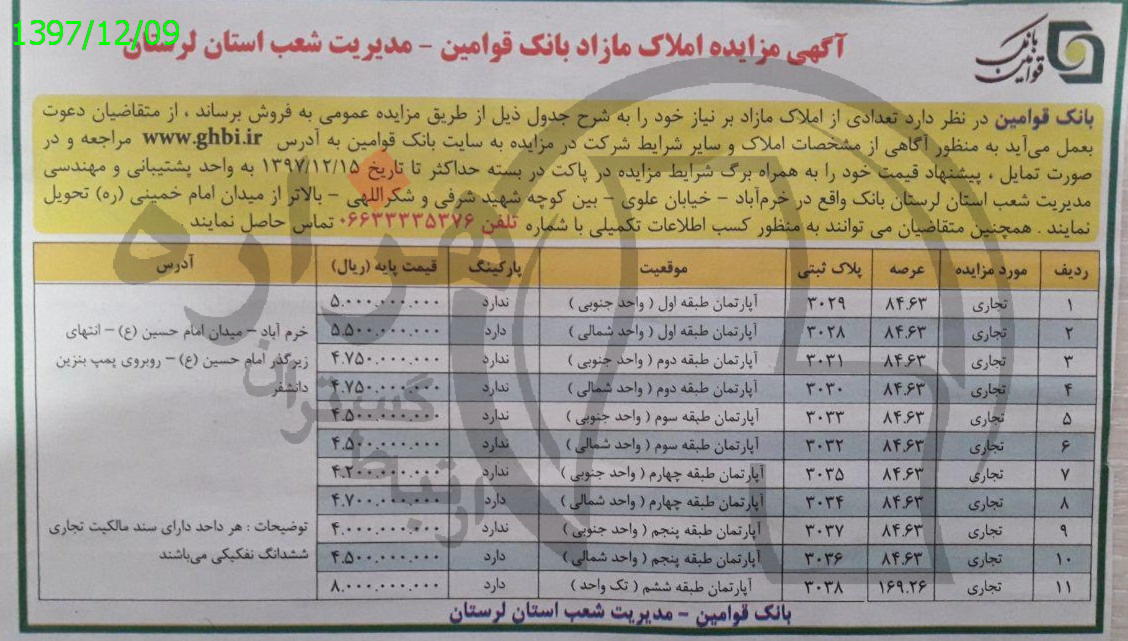 1397/12/09
آگهی مزایده املاک مازاد بانک قوامین - مدیریت شعب استان لرستان
بانک قوامین
بانک قوامین در نظر دارد تعدادی از املاک مازاد بر نیاز خود را به شرح جدول ذیل از طریق مزایده عمومی به فروش برساند ، از متقاضیان دعوت
بعمل می‌آید به منظور آگاهی از مشخصات املاک و سایر شرایط شرکت در مزایده به سایت بانک قوامین به آدرس www.ghbi.ir مراجعه و در
صورت تمایل ، پیشنهاد قیمت خود را به همراه برگ شرایط مزایده در پاکت در بسته حداکثر تا تاریخ ۱۳۹۷/۱۲/۱۵ به واحد پشتیبانی و مهندسی
مدیریت شعب استان لرستان بانک واقع در خرم‌آباد - خیابان علوی - بین کوچه شهید شرفی و شکراللهی - بالاتر از میدان امام خمینی (ره) تحویل
نمایند . همچنین متقاضیان می توانند به منظور کسب اطلاعات تکمیلی با شماره تلفن ۰۶۶۳۳۳۳۵۳۷۶ تماس حاصل نمایند .
ردیف مورد مزایده عرصه پلاک ثبتی موقعیت پارکینگ قیمت پایه (ریال) آدرس
۱ تجاری ۸۴.۶۳ ۳۰۲۹ آپارتمان طبقه اول ( واحد جنوبی ) ندارد ۵.۰۰۰.۰۰۰.۰۰۰
۲ تجاری ۸۴.۶۳ ۳۰۲۸ آپارتمان طبقه اول ( واحد شمالی ) دارد ۵.۵۰۰.۰۰۰.۰۰۰
۳ تجاری ۸۴.۶۳ ۳۰۳۱ آپارتمان طبقه دوم ( واحد جنوبی ) ندارد ۴.۷۵۰.۰۰۰.۰۰۰
۴ تجاری ۸۴.۶۳ ۳۰۳۰ آپارتمان طبقه دوم ( واحد شمالی ) ندارد ۴.۷۵۰.۰۰۰.۰۰۰
۵ تجاری ۸۴.۶۳ ۳۰۳۳ آپارتمان طبقه سوم ( واحد جنوبی ) ندارد ۴.۵۰۰.۰۰۰.۰۰۰
۶ تجاری ۸۴.۶۳ ۳۰۳۲ آپارتمان طبقه سوم ( واحد شمالی ) ندارد ۴.۵۰۰.۰۰۰.۰۰۰
۷ تجاری ۸۴.۶۳ ۳۰۳۵ آپارتمان طبقه چهارم ( واحد جنوبی ) ندارد ۴.۲۰۰.۰۰۰.۰۰۰
۸ تجاری ۸۴.۶۳ ۳۰۳۴ آپارتمان طبقه چهارم ( واحد شمالی ) دارد ۴.۷۰۰.۰۰۰.۰۰۰
۹ تجاری ۸۴.۶۳ ۳۰۳۷ آپارتمان طبقه پنجم ( واحد جنوبی ) ندارد ۴.۰۰۰.۰۰۰.۰۰۰
۱۰ تجاری ۸۴.۶۳ ۳۰۳۶ آپارتمان طبقه پنجم ( واحد شمالی ) دارد ۴.۵۰۰.۰۰۰.۰۰۰
۱۱ تجاری ۱۶۹.۲۶ ۳۰۳۸ آپارتمان طبقه ششم ( تک واحد ) دارد ۸.۰۰۰.۰۰۰.۰۰۰
خرم آباد - میدان امام حسین (ع) - انتهای
زیرگذر امام حسین (ع) - روبروی پمپ بنزین
دانشفر
توضیحات : هر داحد دارای سند مالکیت تجاری
ششدانگ تفکیکی می‌باشند
بانک قوامین - مدیریت شعب استان لرستان
هزاره
ارتباط گستران